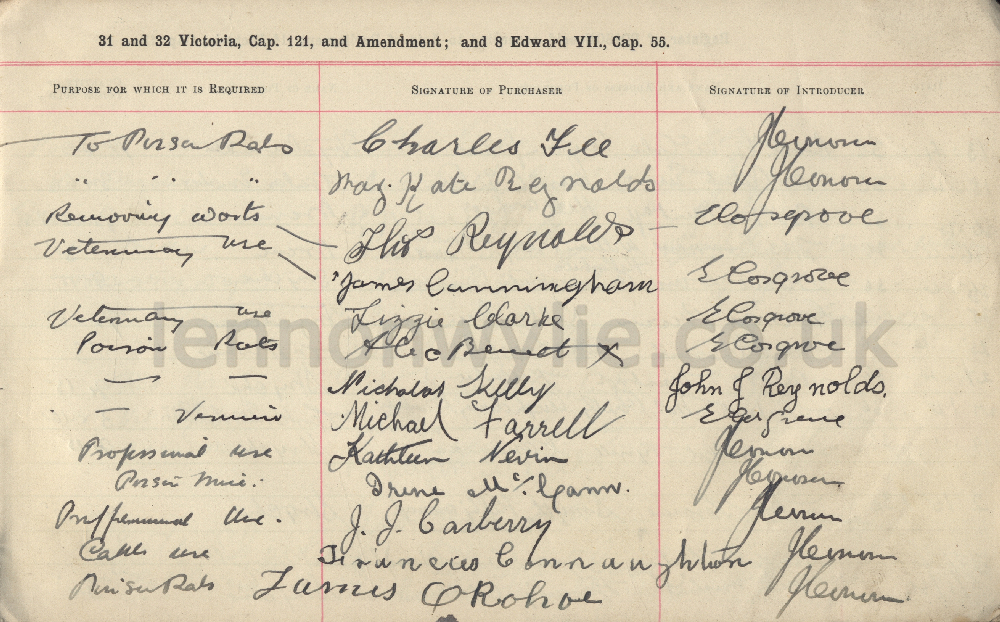 31 and 32 Victoria, Cap. 121, and Amendment; and 8 Edward VII., Cap. 55.
Purpose for which it is Required Signature of Purchaser Signature of Introducer
To Poison Rats Charles Fee
" " " Kate Reynolds
Removing worts Thos Reynolds E Cosgrove
Veterinary use James Cunningham E Cosgrove
Veterinary use Lizzie Clarke E Cosgrove
Poison Rats Alec Bennet X E Cosgrove
Nicholas John J Reynolds.
— Vermin Michael Farrell
Professional use Kathleen Nevin
Poison Mice. Irene McCann.
Professional Use. J. J. Carberry
Cattle use Frances Connaughton
Poison Rats James O'Rohoe
lennonwylie.co.uk